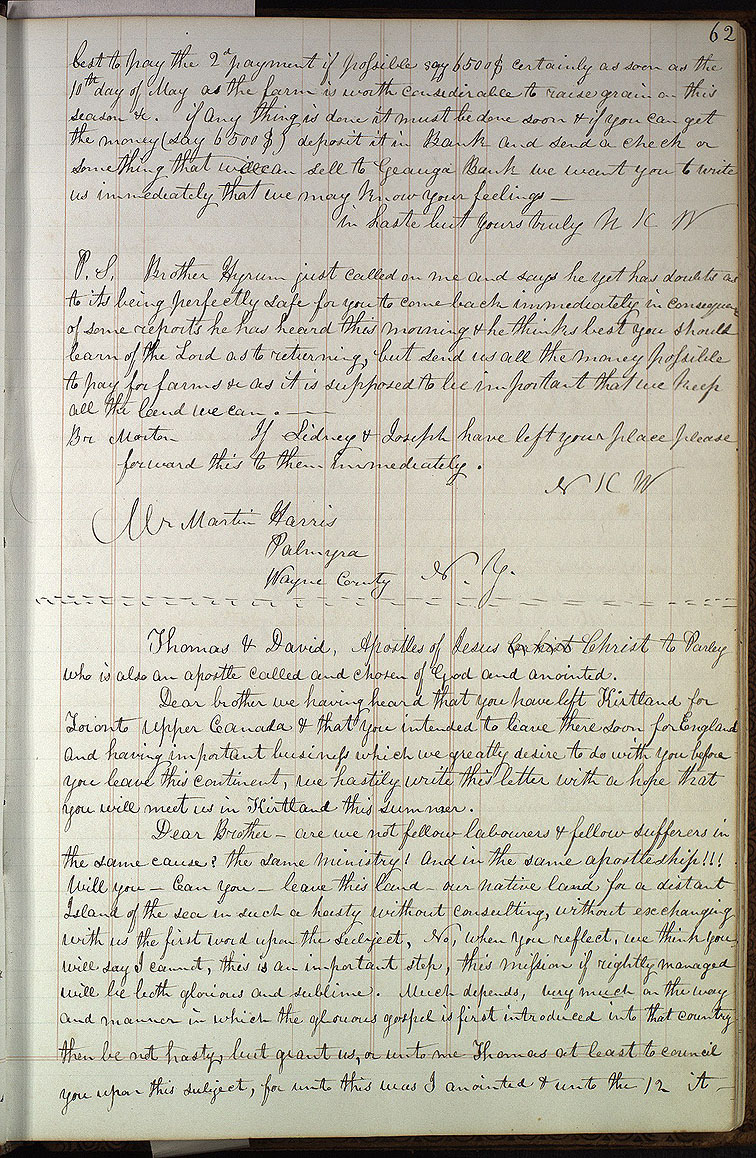 62
best to pay the 2d payment if possible say 6500$ certainly as soon as the
10th day of May as the farm is worth considerable to raise grain on this
season &c. if any thing is done it must be done soon & if you can get
the money (say 6500$) deposit it in Bank and send a check or
something that will can sell to Geauga Bank we want you to write
us immediately that we may know your feelings —
in haste but yours truly N K W
P. S. Brother Hyrum just called on me and says he yet has doubts as
to its being perfectly safe for you to come back immediately in consequence
of some reports he has heard this morning & he thinks best you should
learn of the Lord as to returning, but send us all the money possible
to pay for farms &c as it is supposed to be important that we keep
all the land we can. —
Br Morton If Sidney & Joseph have left your place please
forward this to them immediately.
N K W
Mr Martin Harris
Palmyra
Wayne County N. Y.
Thomas & David, Apostles of Jesus Christ to Parley
who is also an apostle called and chosen of God and anointed.
Dear brother we having heard that you have left Kirtland for
Toronto Upper Canada & that you intended to leave there soon for England
and having important business which we greatly desire to do with you before
you leave this continent, we hastily write this letter with a hope that
you will meet us in Kirtland this summer.
Dear Brother — are we not fellow labourers & fellow sufferers in
the same cause? the same ministry! And in the same apostleship!!!
Will you — Can you — leave this land — our native land for a distant
Island of the sea in such a hasty without consulting, without exchanging
with us the first word upon the subject, No, when you reflect, we think you
will say I cannot, this is an important step, this mission if rightly managed
will be both glorious and sublime. Much depends, very much on the way
and manner in which the glorious gospel is first introduced into that country
then be not hasty, but grant us, or unto me Thomas at least to council
you upon this subject, for unto this was I anointed & unto the 12 it —